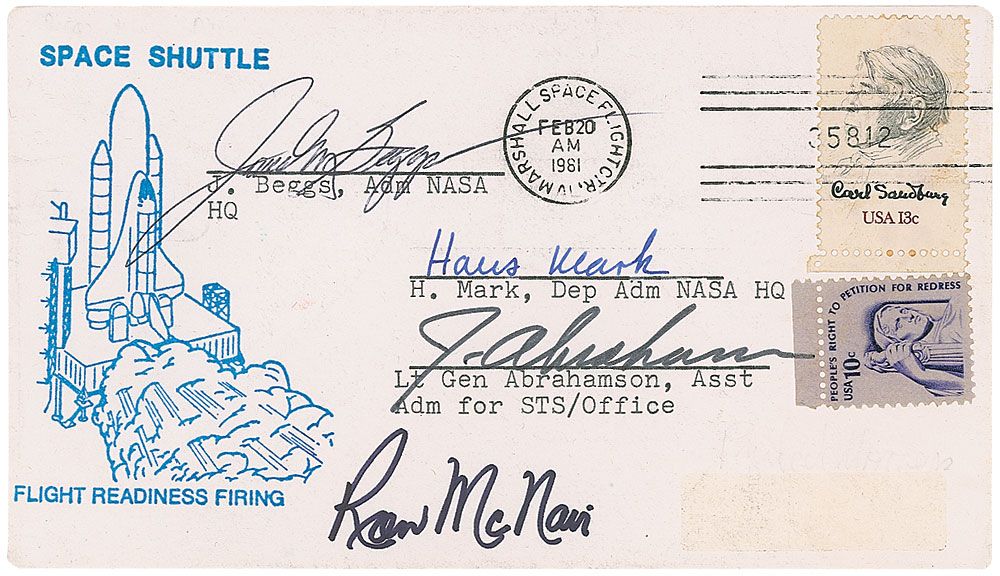 SPACE SHUTTLE
James M Beggs
J. Beggs, Adm NASA
HQ
MARSHALL SPACE FLIGHT CTR.
FEB 20
AM
1981
35812
Carl Sandburg
USA 13c
Hans Mark
H. Mark, Dep Adm NASA HQ
PEOPLE'S RIGHT TO PETITION FOR REDRESS
USA 10c
J. Abraham
Lt Gen Abrahamson, Asst
Adm for STS/Office
FLIGHT READINESS FIRING
Ron McNair